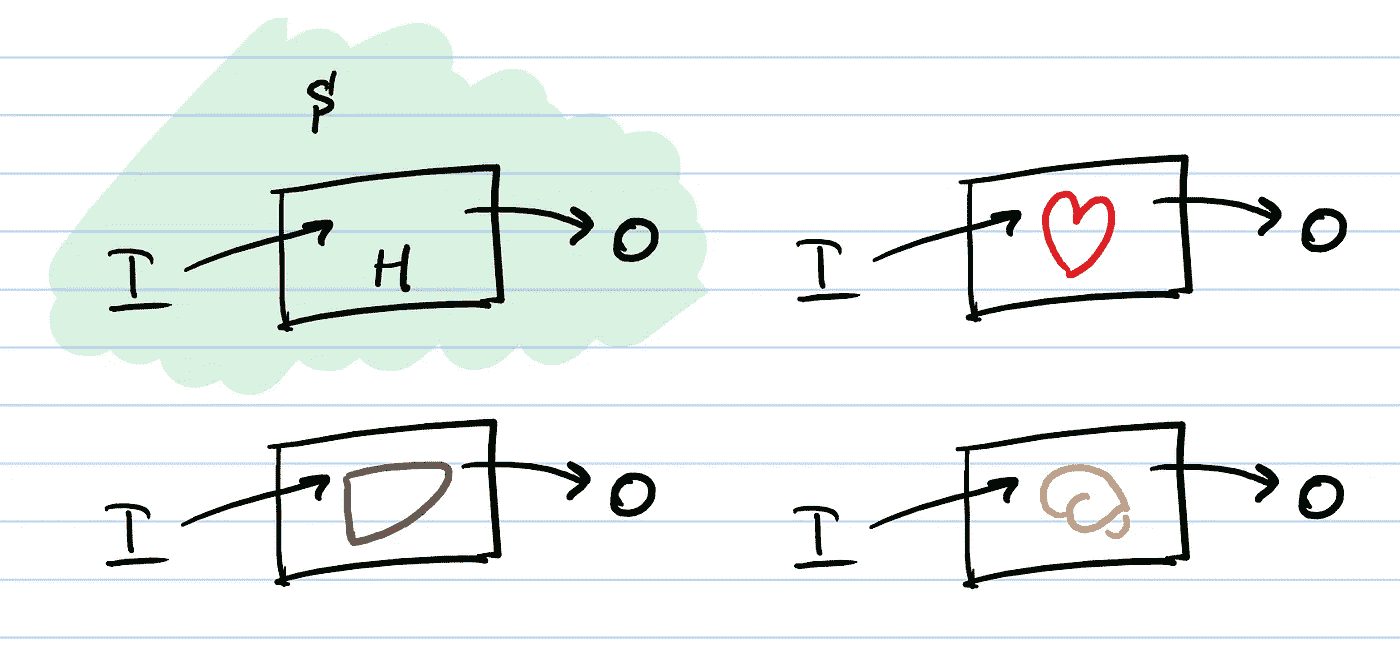 $
I H O
I O
I O
I O